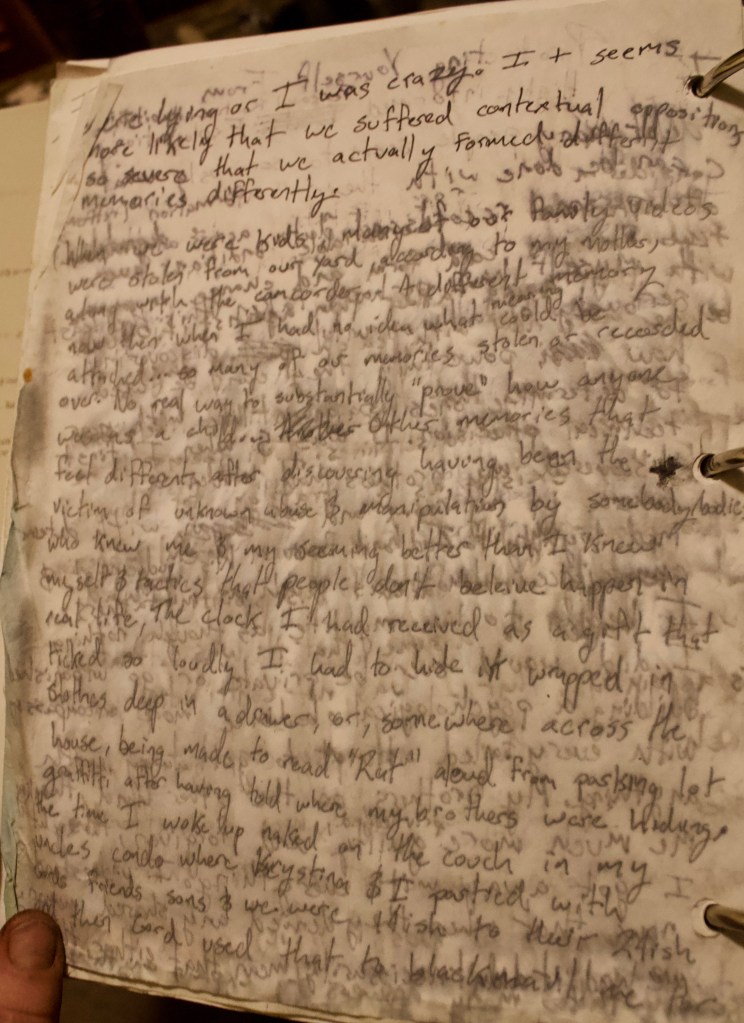 lying or I was crazy. It seems
more likely that we suffered contextual opposition
so severe that we actually formed different
memories differently.
When we were kids, many of our family videos
were stolen from our yard according to my mother,
along with the camcorder. A different memory
now then when I had no idea what meaning could be
attached... so many of our memories stolen or recorded
over. No real way to substantially "prove" how anyone
was as a child. Other memories that
feel different after discovering having been the
victim of unknown abuse & manipulation by somebody/bodies
who knew me & my seeming better than I knew
myself & tactics that people don't beleive happen in
real life, The clock I had received as a gift that
ticked so loudly I had to hide it wrapped in
clothes deep in a drawer, or, somewhere across the
house, being made to read "Rat" aloud from parking lot
graffitti after having told where my brothers were hiding,
the time I woke up naked on the couch in my
uncles condo where Krystina & I partied with
friends sons & we were to their 24ish
then Gord used that to blackmail the